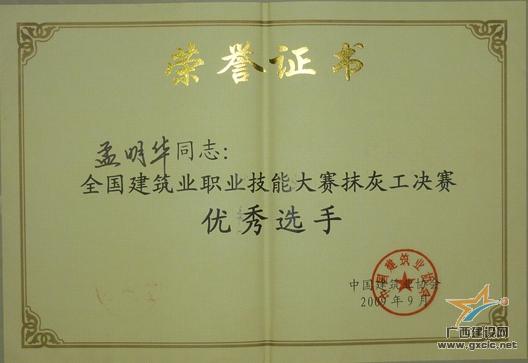 荣誉证书
孟明华同志:
全国建筑业职业技能大赛抹灰工决赛
优秀选手
中国建筑业协会
2009年9月
中国建筑业协会
广西建设网
www.gxcic.net